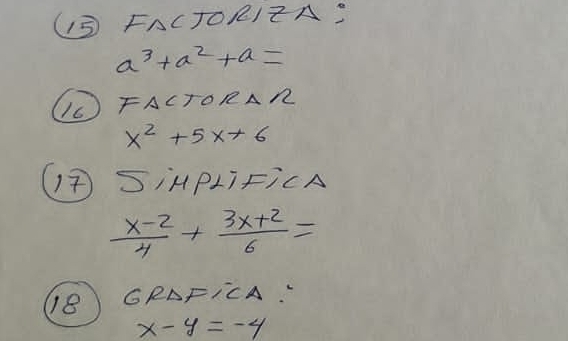 15 FACTORIZA:
a³+a²+a=
16 FACTORAR
x²+5x+6
17 SIMPLIFICA
x-2/4 + 3x+2/6 =
18 GRAFICA:
x-y=-4